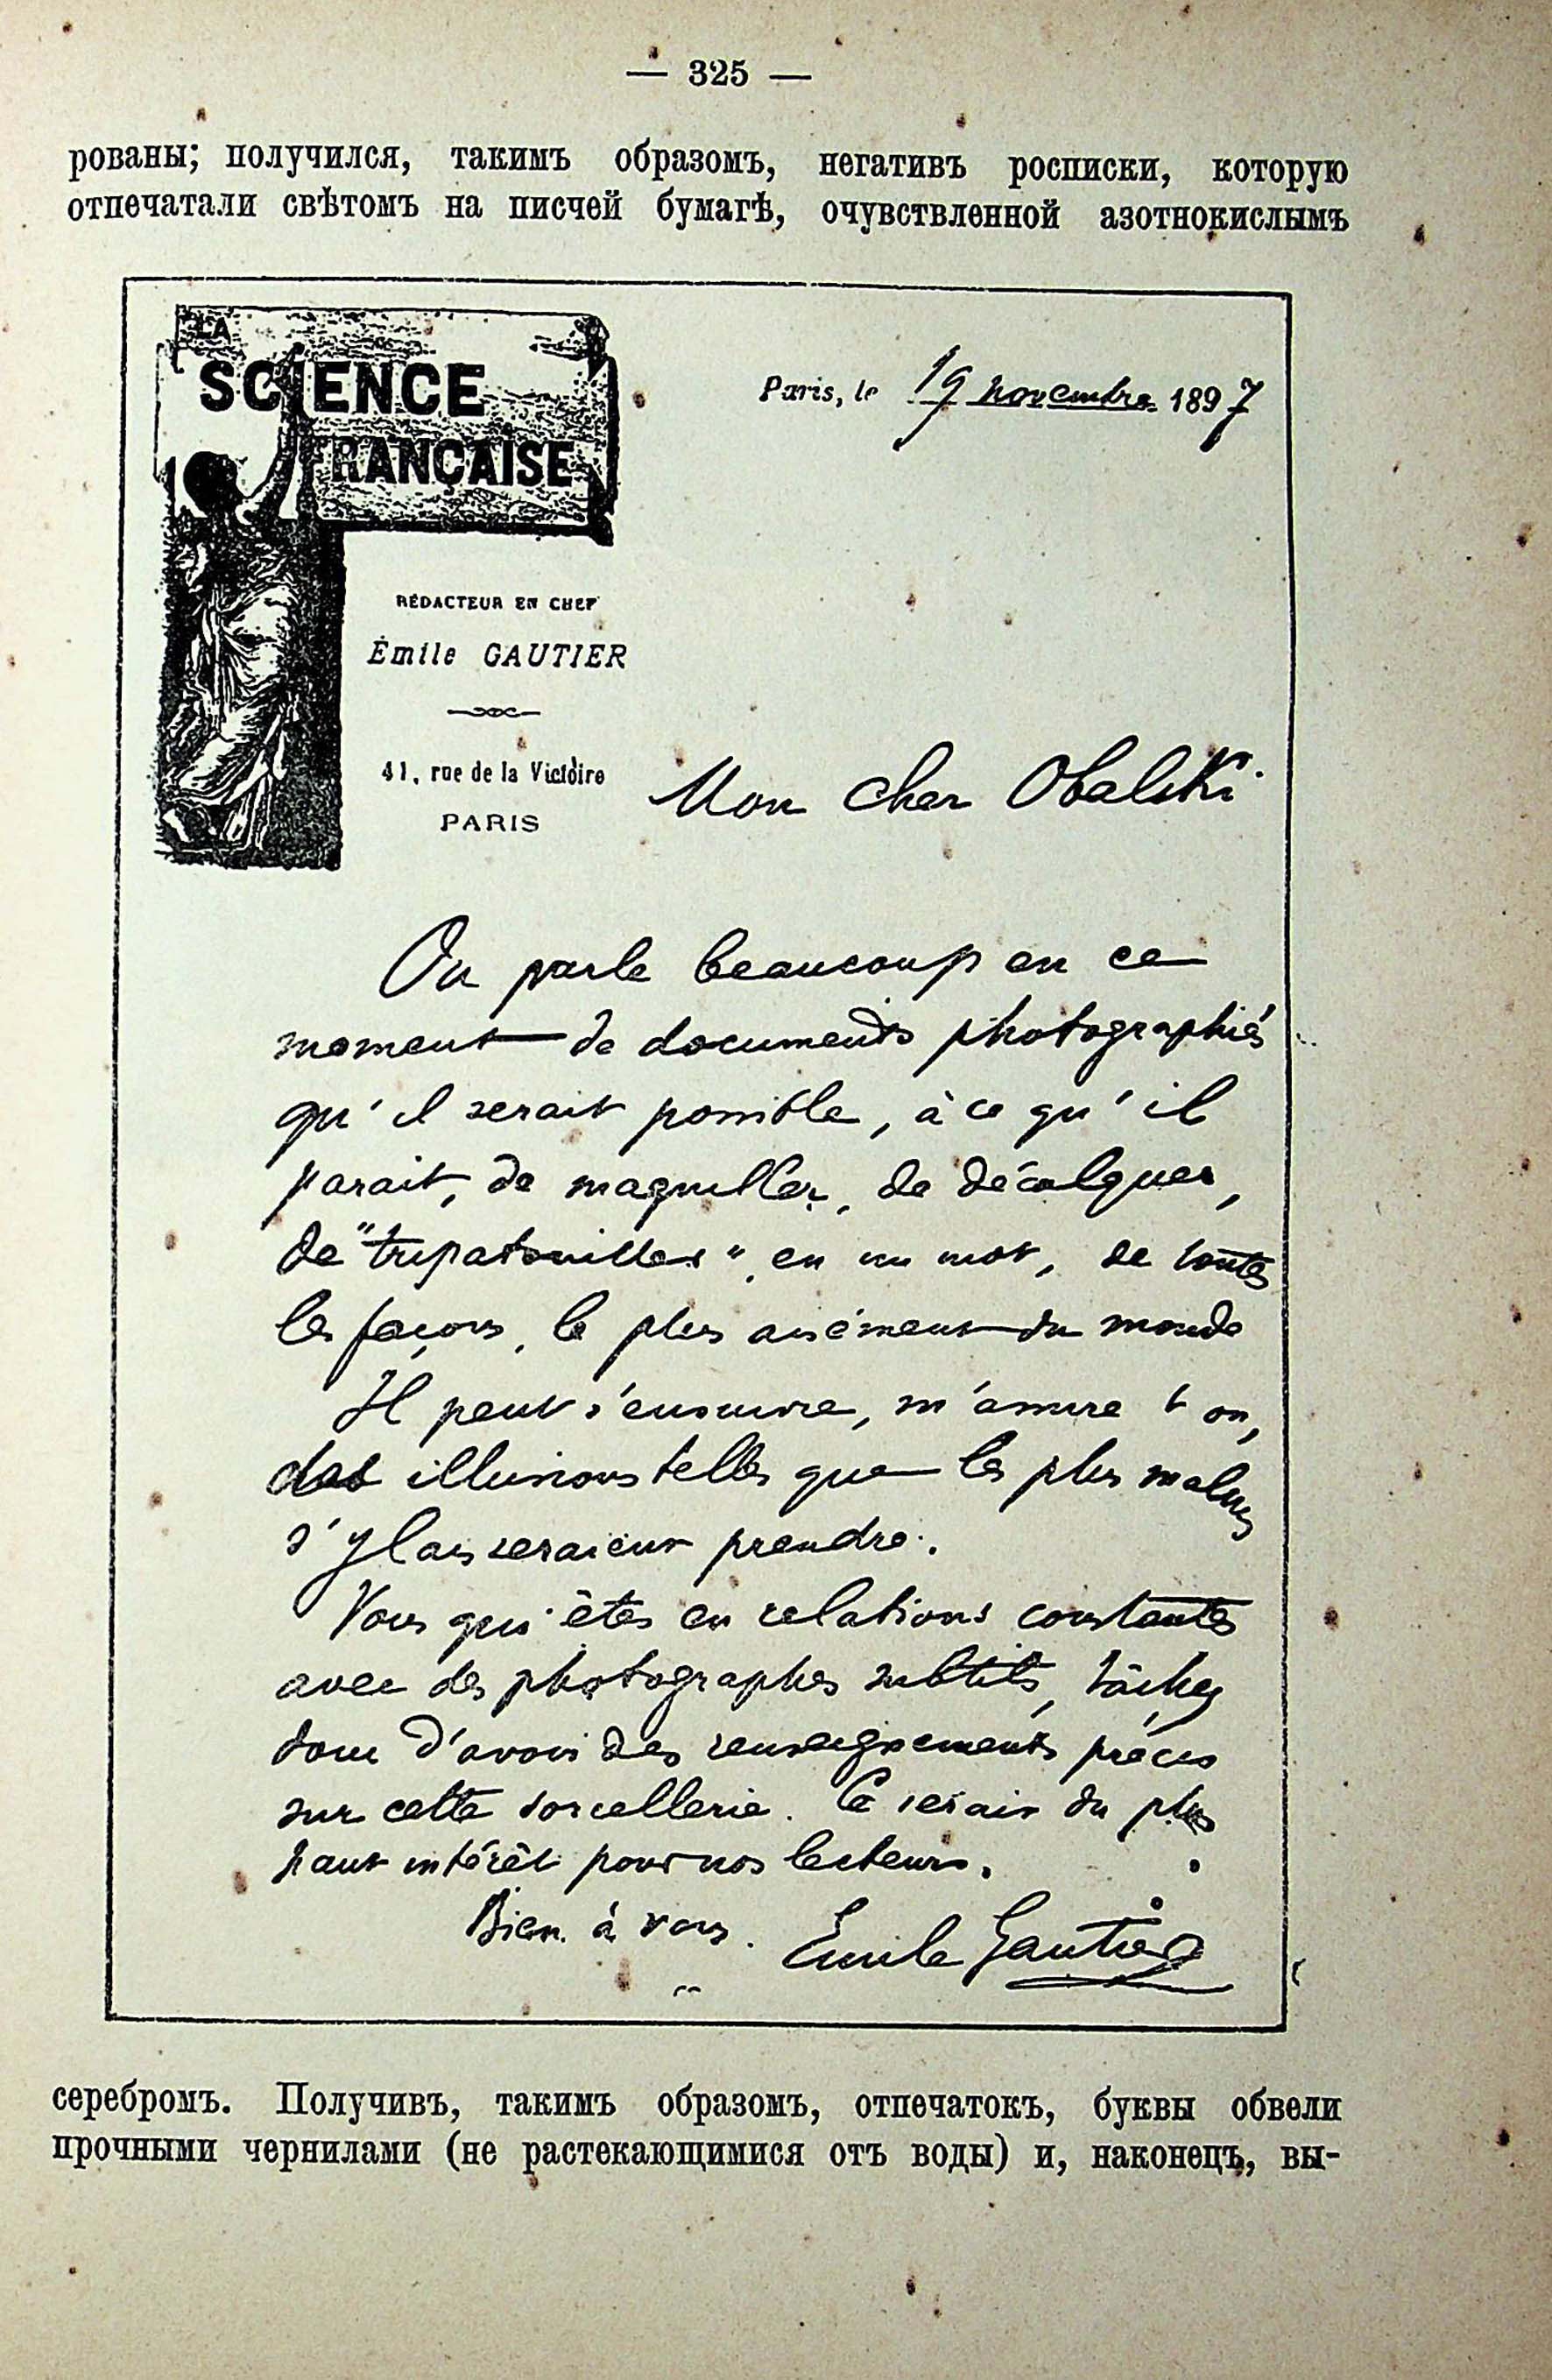 — 325 —
рованы; получился, такимъ образомъ, негативъ росписки, которую
отпечатали свѣтомъ на писчей бумагѣ, очувствленной азотнокислымъ
LA
SCIENCE
FRANÇAISE
Paris, le 19 novembre 1897
RÉDACTEUR EN CHEF
Émile GAUTIER
41, rue de la Victoire
PARIS
Mon cher Obalski
On parle beaucoup en ce
moment de documents photographiés
qu'il serait possible, à ce qu'il
parait, de maquiller, de décalquer,
de "tripatouiller", en un mot, de toutes
les façons, le plus aisément du monde
Il peut s'ensuivre, m'assure t on,
des illusions telles que les plus malins
s'y laisseraient prendre.
Vous qui êtes en relations constantes
avec des photographes subtils, tâchez
donc d'avoir des renseignements précis
sur cette sorcellerie. Ce serait du plus
haut intérêt pour nos lecteurs.
Bien à vous. Emile Gautier
серебромъ. Получивъ, такимъ образомъ, отпечатокъ, буквы обвели
прочными чернилами (не растекающимися отъ воды) и, наконецъ, вы-